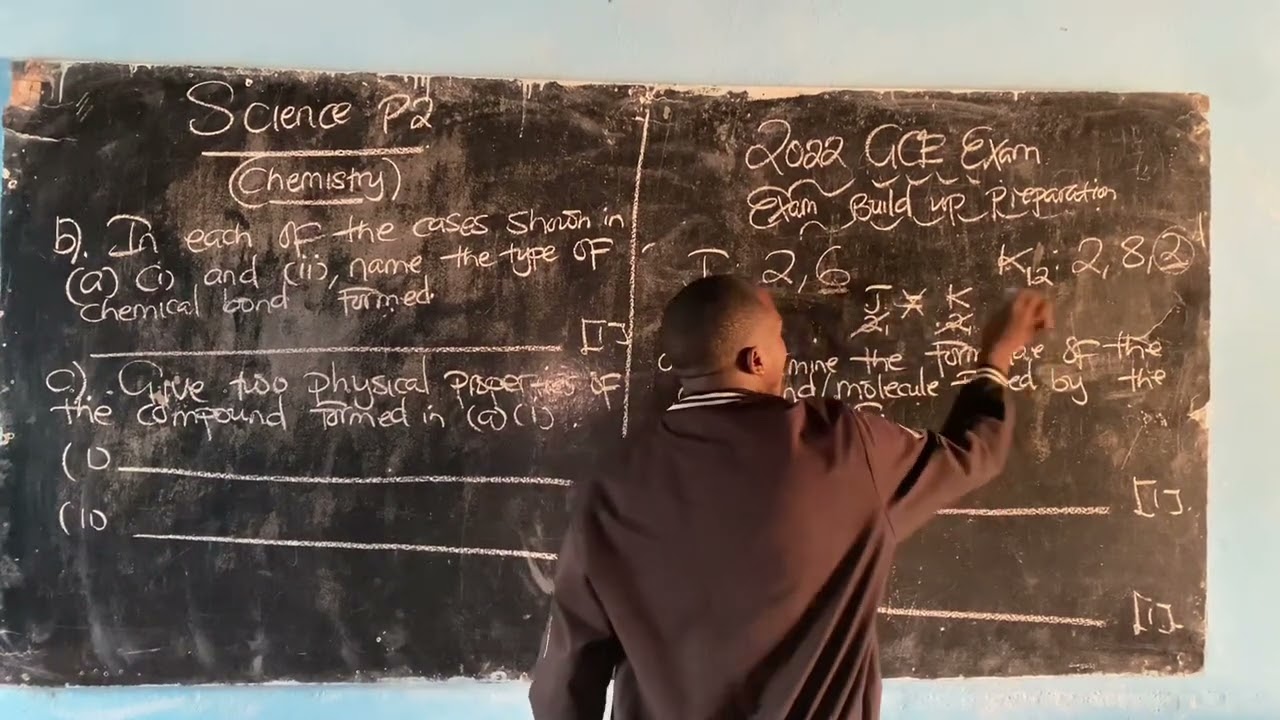 Science P2
(Chemistry)
b). In each of the cases shown in
(a) (i) and (ii), name the type of
Chemical bond formed.
[1]
c). Give two physical properties of
the compound formed in (a) (i).
(i)
(ii)
2022 GCE Exam
Exam Build up Preparation
2, 6
K12: 2, 8, 2
J K
2 2
mine the formulae of the
nd/molecule formed by the
[1].
[1].